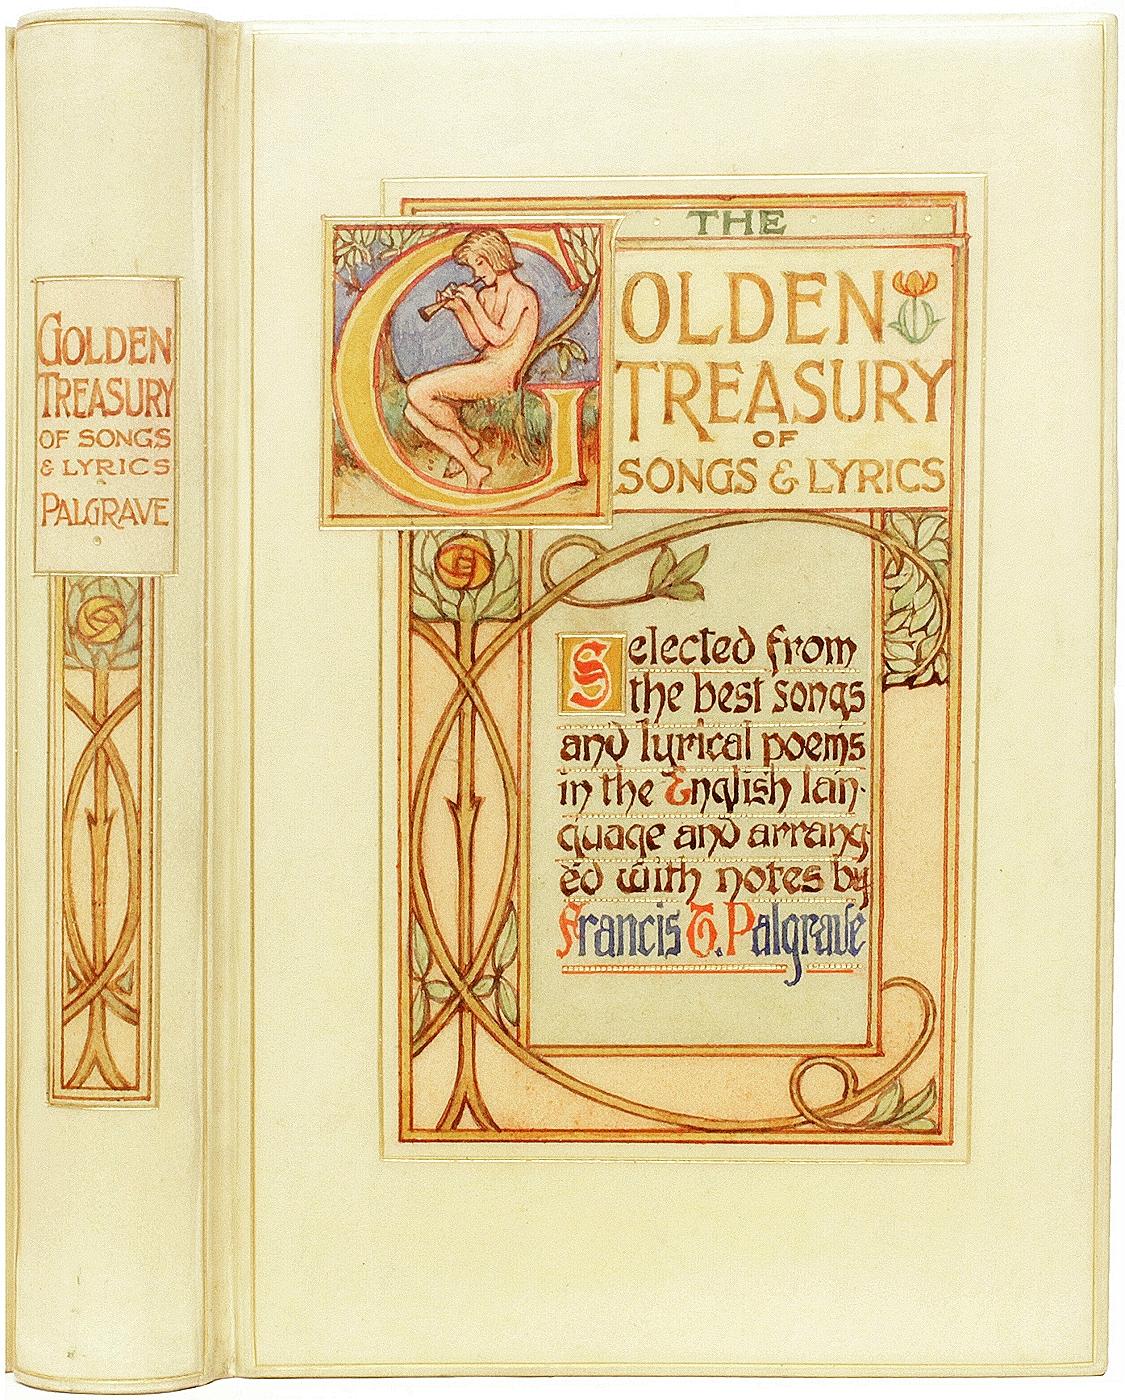 GOLDEN
TREASURY
OF SONGS
& LYRICS
PALGRAVE
THE
GOLDEN
TREASURY
OF
SONGS & LYRICS
Selected from
the best songs
and lyrical poems
in the English lan-
guage and arrang-
ed with notes by
Francis T. Palgrave